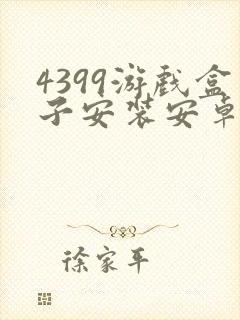 4399游戏盒
子安装安卓
徐家平